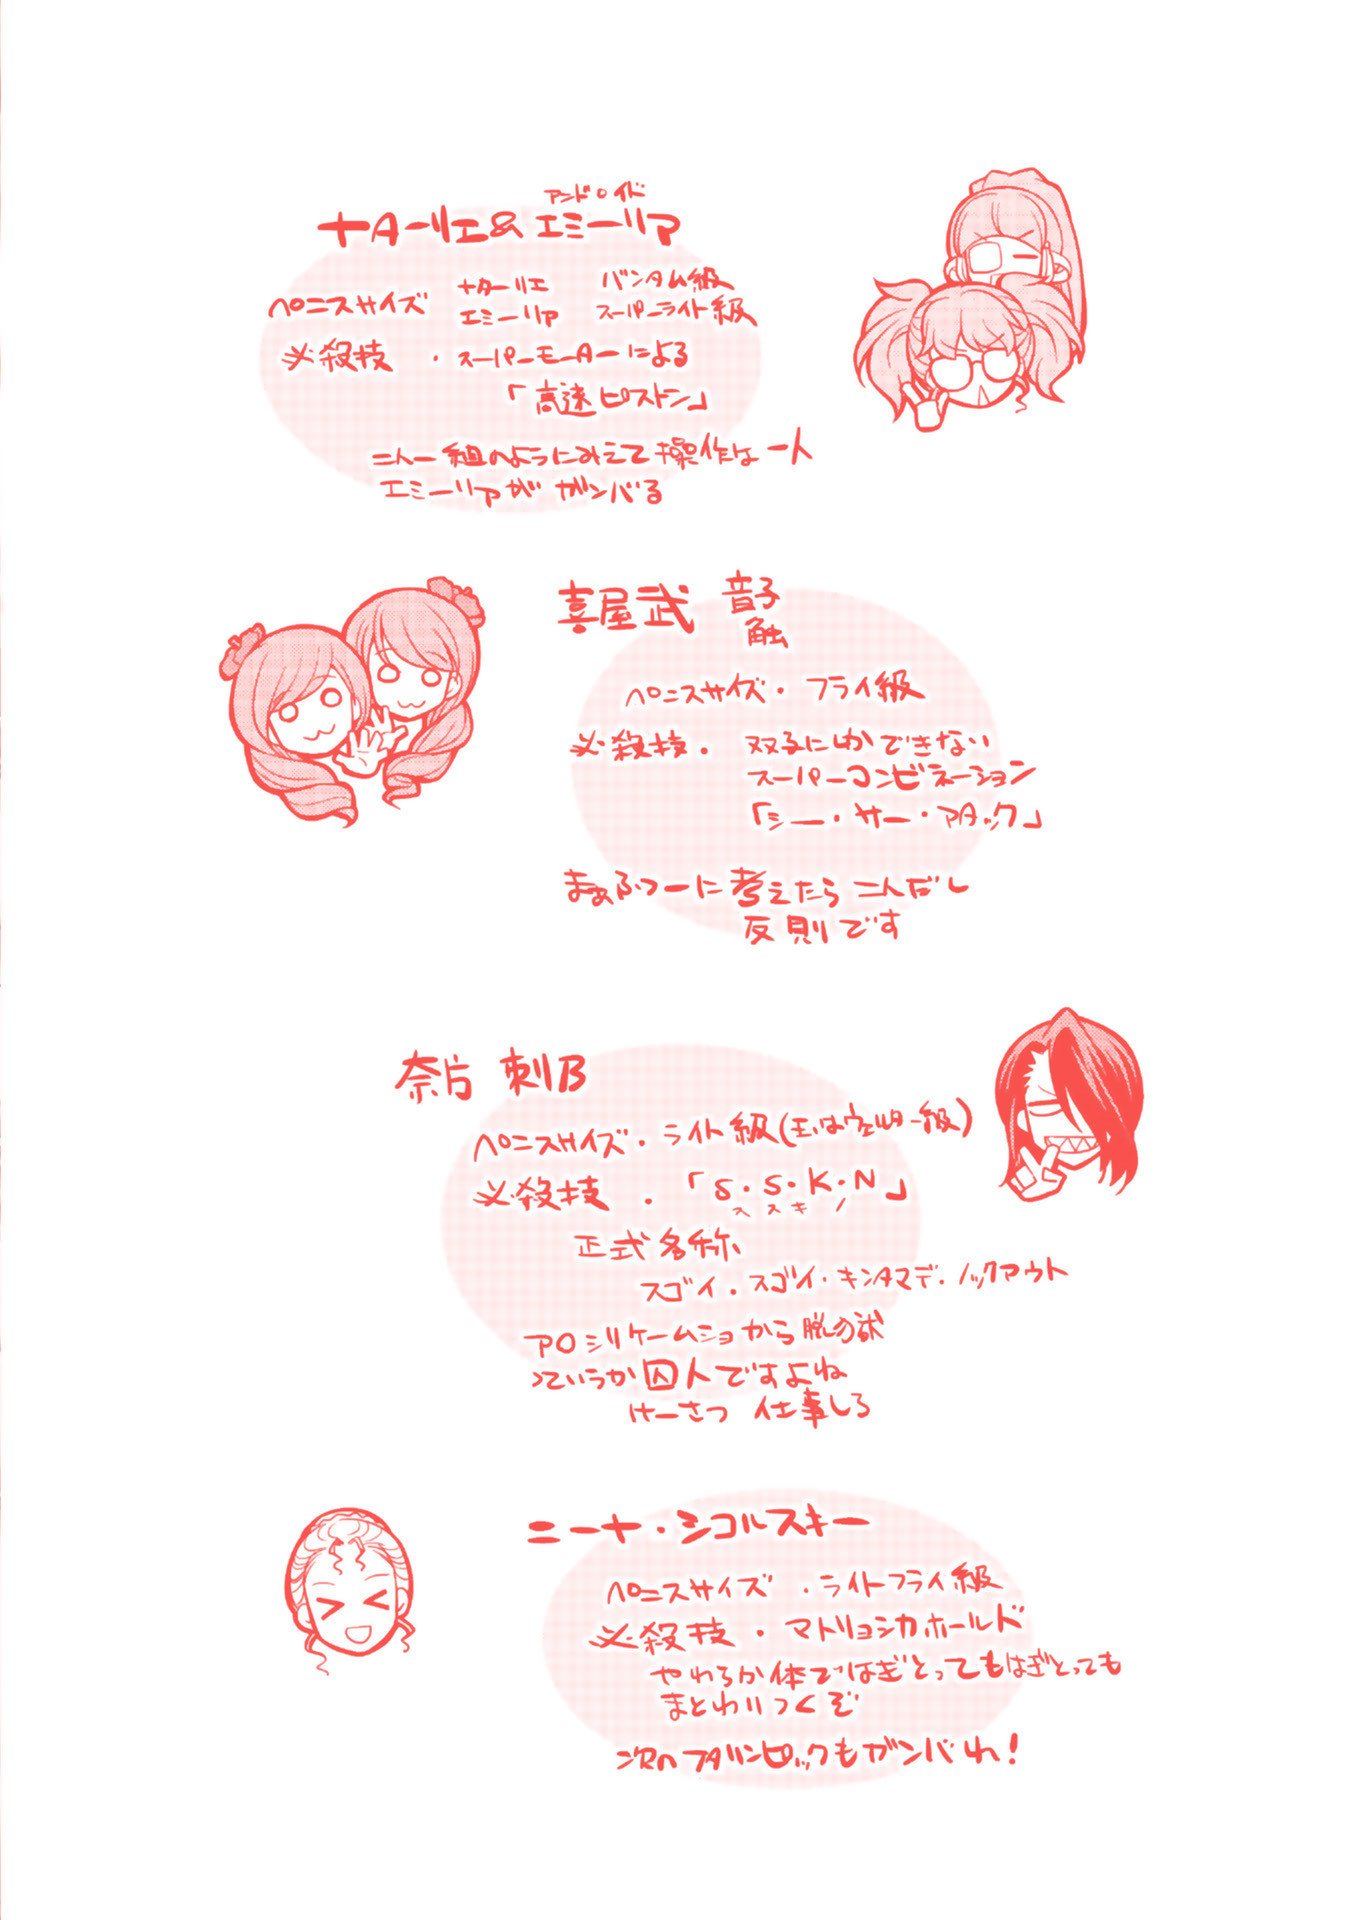 アンドロイド
ナAーリエ&エミーリア
ペニスサイズ ナターリエ バンタム級
エミーリア スーパーライト級
必殺技・スーパーモーAーによる
「高速ピストン」
二人一組のようにみえて操作は一人
エミーリアがガンバる
喜屋武 音子
触
ペニスサイズ・フライ級
必殺技・双子にしかできない
スーパーコンビネーション
「シー・サー・アタック」
まぁふつーに考えたら二人だし
反則です
奈片 刺B
ペニスサイズ・ライト級(玉はウェルター級)
必殺技・「S・S・K・N」
ススキノ
正式名称
スゴイ・スゴイ・キンタマデ・ノックアウト
アOシリケームショから脱の獄
っていうか囚人ですよね
けーさつ 仕事しろ
ニーナ・シコルスキー
ペニスサイズ・ライトフライ級
必殺技・マトリョシカホールド
やわらか体ではぎとってもはぎとっても
まとわりつくぞ
次のフタリンピックもガンバれ!